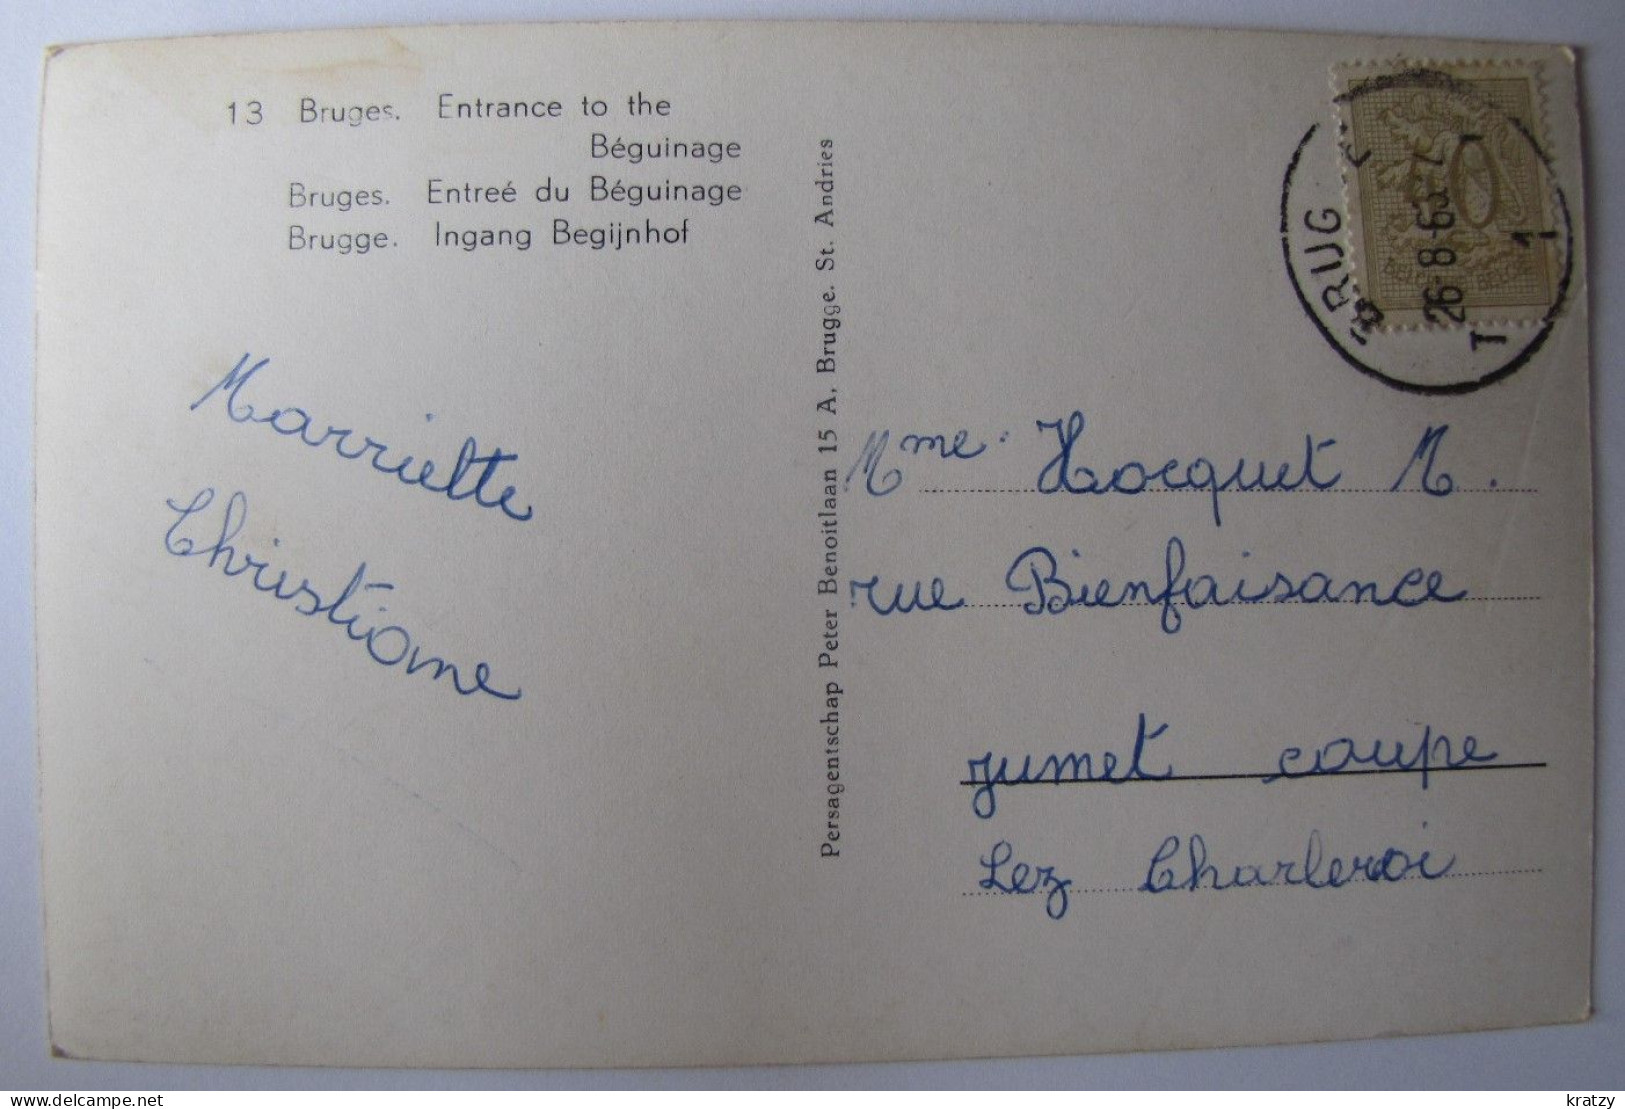 13 Bruges. Entrance to the
Béguinage
Bruges. Entreé du Béguinage
Brugge. Ingang Begijnhof
Marriette
Christiane
Persagentschap Peter Benoitlaan 15 A, Brugge. St. Andries
BRUG
26-8-63
1
T
Mme. Hocquet M.
rue Bienfaisance
jumet coupe
Lez Charleroi
kratzy
delcampe.net